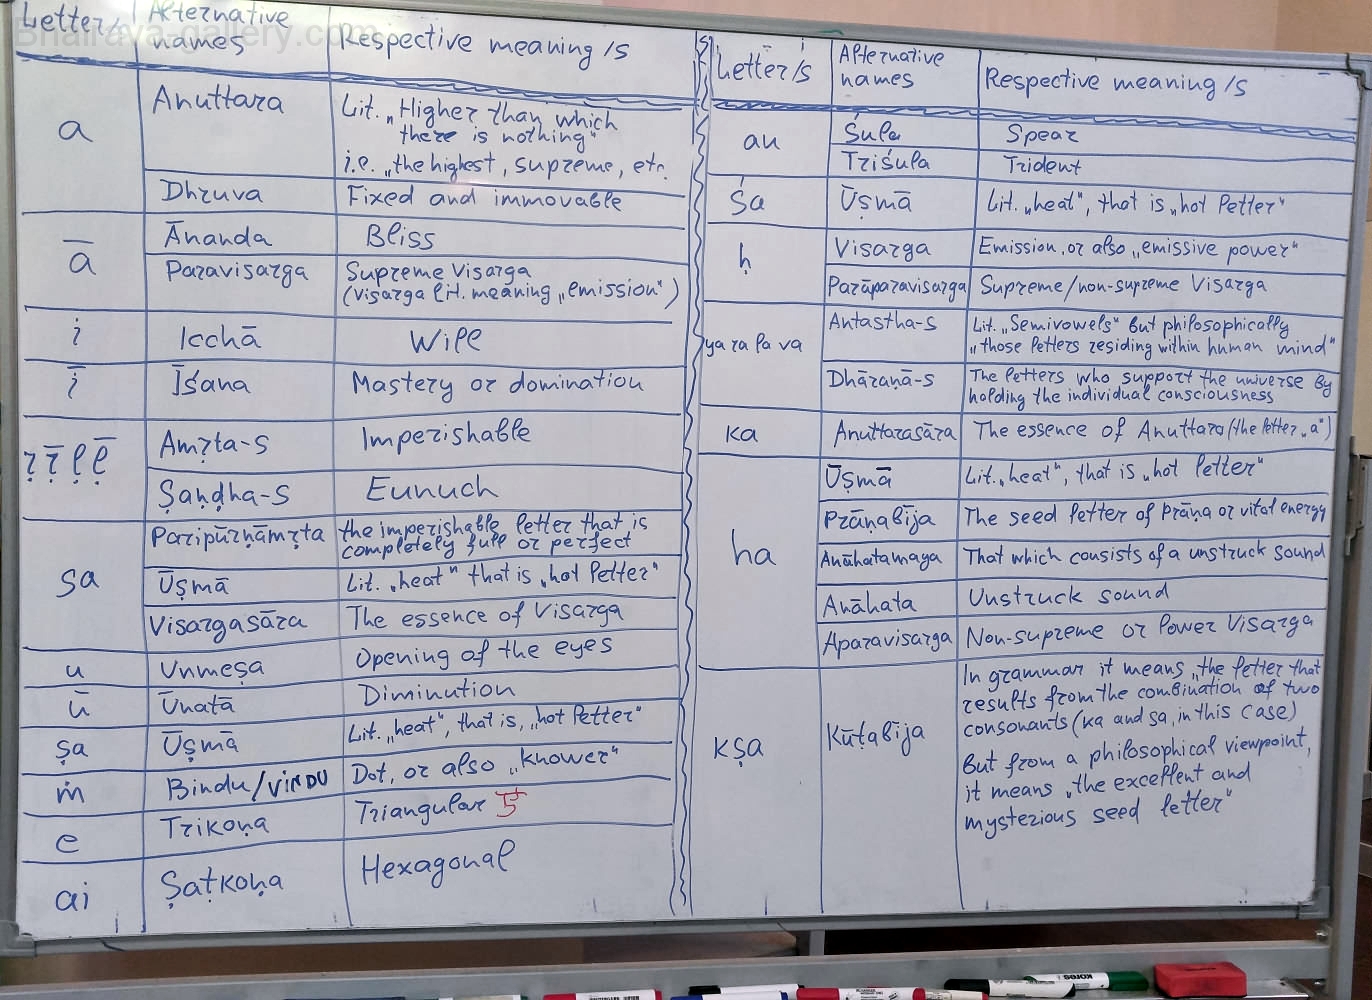 Bhairava-gallery.com
Letter/s Alternative names Respective meaning/s
a Anuttara Lit. „Higher than which
there is nothing"
i.e. „the highest, supreme, etc.
Dhruva Fixed and immovable
ā Ānanda Bliss
Paravisarga Supreme Visarga
(Visarga lit. meaning „emission")
i Icchā Will
ī Īśana Mastery or domination
ṛ ṝ ḷ ḹ Amṛta-s Imperishable
Ṣaṇḍha-s Eunuch
sa Paripūrṇāmṛta the imperishable letter that is
completely full or perfect
Ūṣmā Lit. „heat" that is „hot letter"
Visargasāra The essence of Visarga
u Unmeṣa Opening of the eyes
ū Ūnatā Diminution
ṣa Ūṣmā Lit. „heat", that is, „hot letter"
ṁ Bindu/VINDU Dot, or also „knower"
e Trikoṇa Triangular
ai Ṣaṭkoṇa Hexagonal
Letter/s Alternative names Respective meaning/s
au Śula Spear
Triśula Trident
śa Ūṣmā Lit. „heat", that is „hot letter"
ḥ Visarga Emission, or also „emissive power"
Parāparavisarga Supreme/non-supreme Visarga
ya ra la va Antastha-s Lit. „Semivowels" but philosophically
„those letters residing within human mind"
Dhāraṇā-s The letters who support the universe by
holding the individual consciousness
ka Anuttarasāra The essence of Anuttara (the letter „a")
ha Ūṣmā Lit. „heat", that is „hot letter"
Prāṇabīja The seed letter of Prāṇa or vital energy
Anāhatamaya That which consists of a unstruck sound
Anāhata Unstruck sound
Aparavisarga Non-supreme or Power Visarga
kṣa Kūṭabīja In grammar it means „the letter that
results from the combination of two
consonants (ka and sa, in this case)
But from a philosophical viewpoint,
it means „the excellent and
mysterious seed letter"
kores